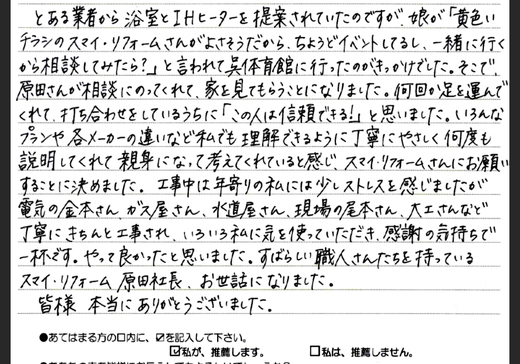 とある業者から浴室とIHヒーターを提案されていたのですが、娘が「黄色い
チラシのスマイ・リフォームさんがよさそうだから、ちょうどイベントしてるし、一緒に行く
から相談してみたら?」と言われて呉体育館に行ったのがきっかけでした。そこで、
原田さんが相談にのってくれて、家を見てもらうことになりました。何回か足を運んで
くれて、打ち合わせをしているうちに「この人は信頼できる!」と思いました。いろんな
プランや各メーカーの違いなど私でも理解できるように丁寧にやさしく何度も
説明してくれて親身になって考えてくれていると感じ、スマイ・リフォームさんにお願い
することに決めました。工事中は年寄りの私には少しストレスを感じましたが
電気の金本さん、ガス屋さん、水道屋さん、現場の尾本さん、大工さんなど
丁寧にきちんと工事され、いろいろ私に気を使っていただき、感謝の気持ちで
一杯です。やって良かったと思いました。すばらしい職人さんたちを持っている
スマイ・リフォーム 原田社長、お世話になりました。
皆様 本当にありがとうございました。
●あてはまる方の口内に、☑を記入して下さい。
☑私が、推薦します。 □私は、推薦しません。